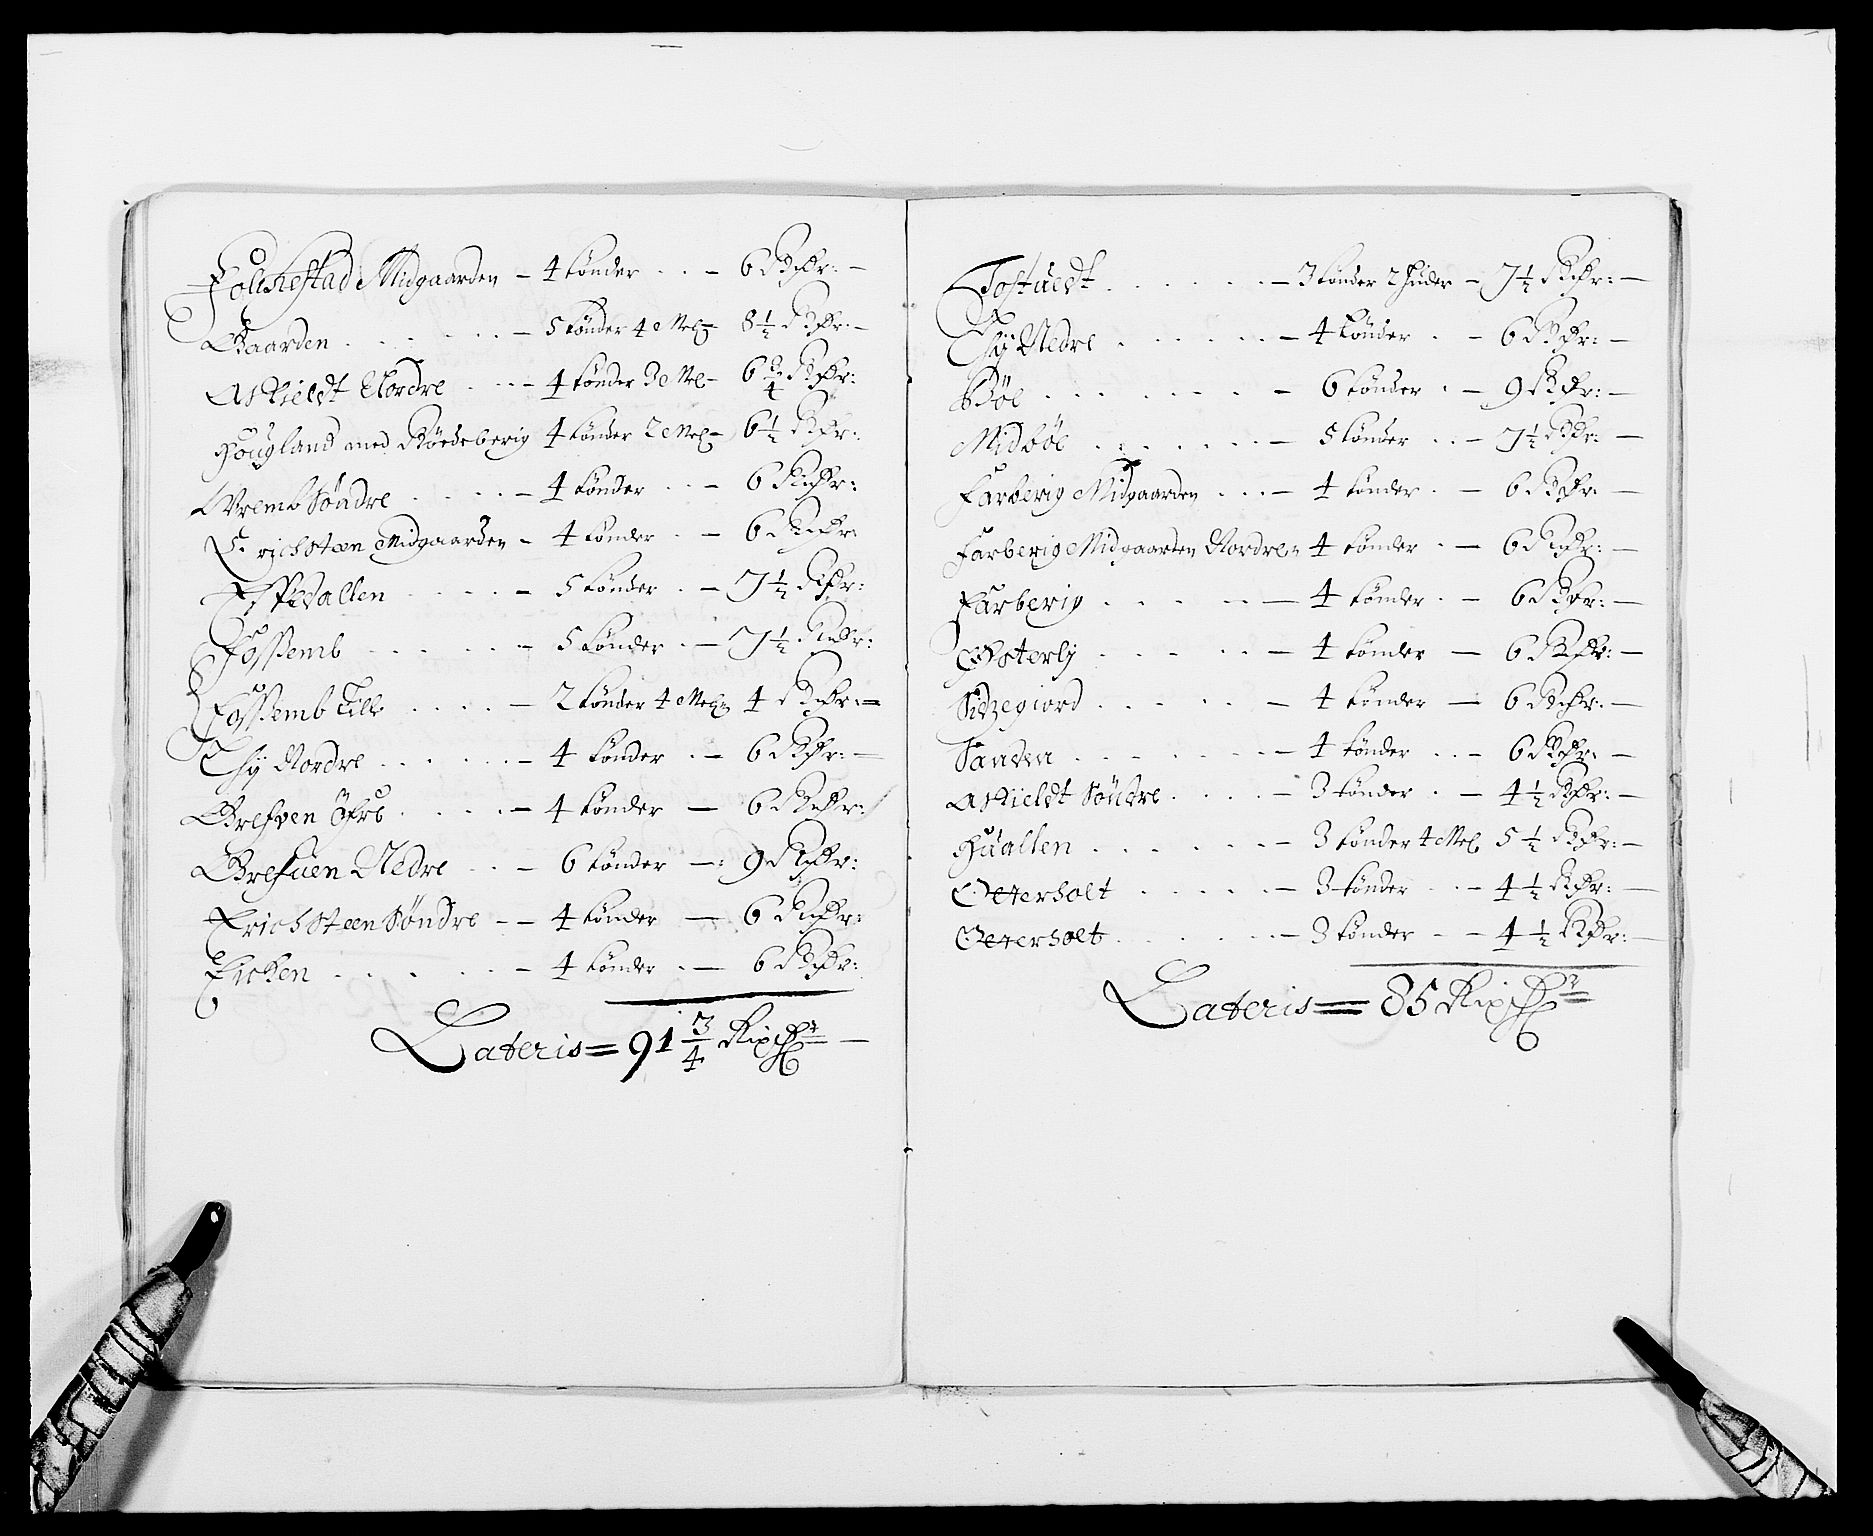 Follnestad Midgaarden – 4 tønder . . – 6 Rdr: –
Gaarden . . . . . – 5 tønder 4 Mel: 8½ Rdr: –
Askieldt Nordre . . . – 4 tønder 3 Mel – 6¾ Rdr:
Hougland med Röedeberig 4 tønder 2 Mel – 6½ Rdr:
Wremb Söndre . . . . – 4 tønder . . – 6 Rdr:
Erichsteen Midgaarden – 4 tønder . – 6 Rdr:
Espevallen . . . . – 5 tønder . – 7½ Rdr:
Fossemb . . . . . – 5 tønder . – 7½ Rdr:
Fossemb Lille . . . . – 2 tønder 4 Mel: 4 Rdr: –
Thy Nordre . . . . . – 4 tønder . – 6 Rdr: –
Grefven Öfre . . . . – 4 tønder – 6 Rdr:
Grefuen Nedre . . – 6 tønder – 9 Rdr:
Erichsteen Søndre – – 4 tønder – 6 Rdr:
Eicken . . . . . – 4 tønder . – 6 Rdr:
Lateris = 91¾ Rixdr –
Tostuedt . . . . . . – 3 tønder 2 huder – 7½ Rdr: –
Thy Nedre . . . . . – 4 tønder . – 6 Rdr: –
Böe . . . . . . . – 6 tønder . – 9 Rdr: –
Midböe . . . . . . – 5 tønder . . – 7½ Rdr: –
Farberig Midgaarden . . . – 4 tønder . – 6 Rdr: –
Farberig Midgaarden Nordre 4 tønder . – 6 Rdr: –
Farberig . . . . . . – 4 tønder . – 6 Rdr: –
Østerby . . . . . – 4 tønder – 6 Rdr: –
Sidzegiord . . . . . – 4 tønder – 6 Rdr: –
Sanden . . . . . . – 4 tønder . . – 6 Rdr: –
Askieldt Söndre . . . . – 3 tønder . – 4½ Rdr: –
Huallen . . . . . . – 3 tønder 4 Mel 5½ Rdr: –
Oeterholt . . . . . – 3 tønder . . – 4½ Rdr: –
Oeterholt . . . . . – 3 tønder – – 4½ Rdr: –
Lateris = 85 Rixdr